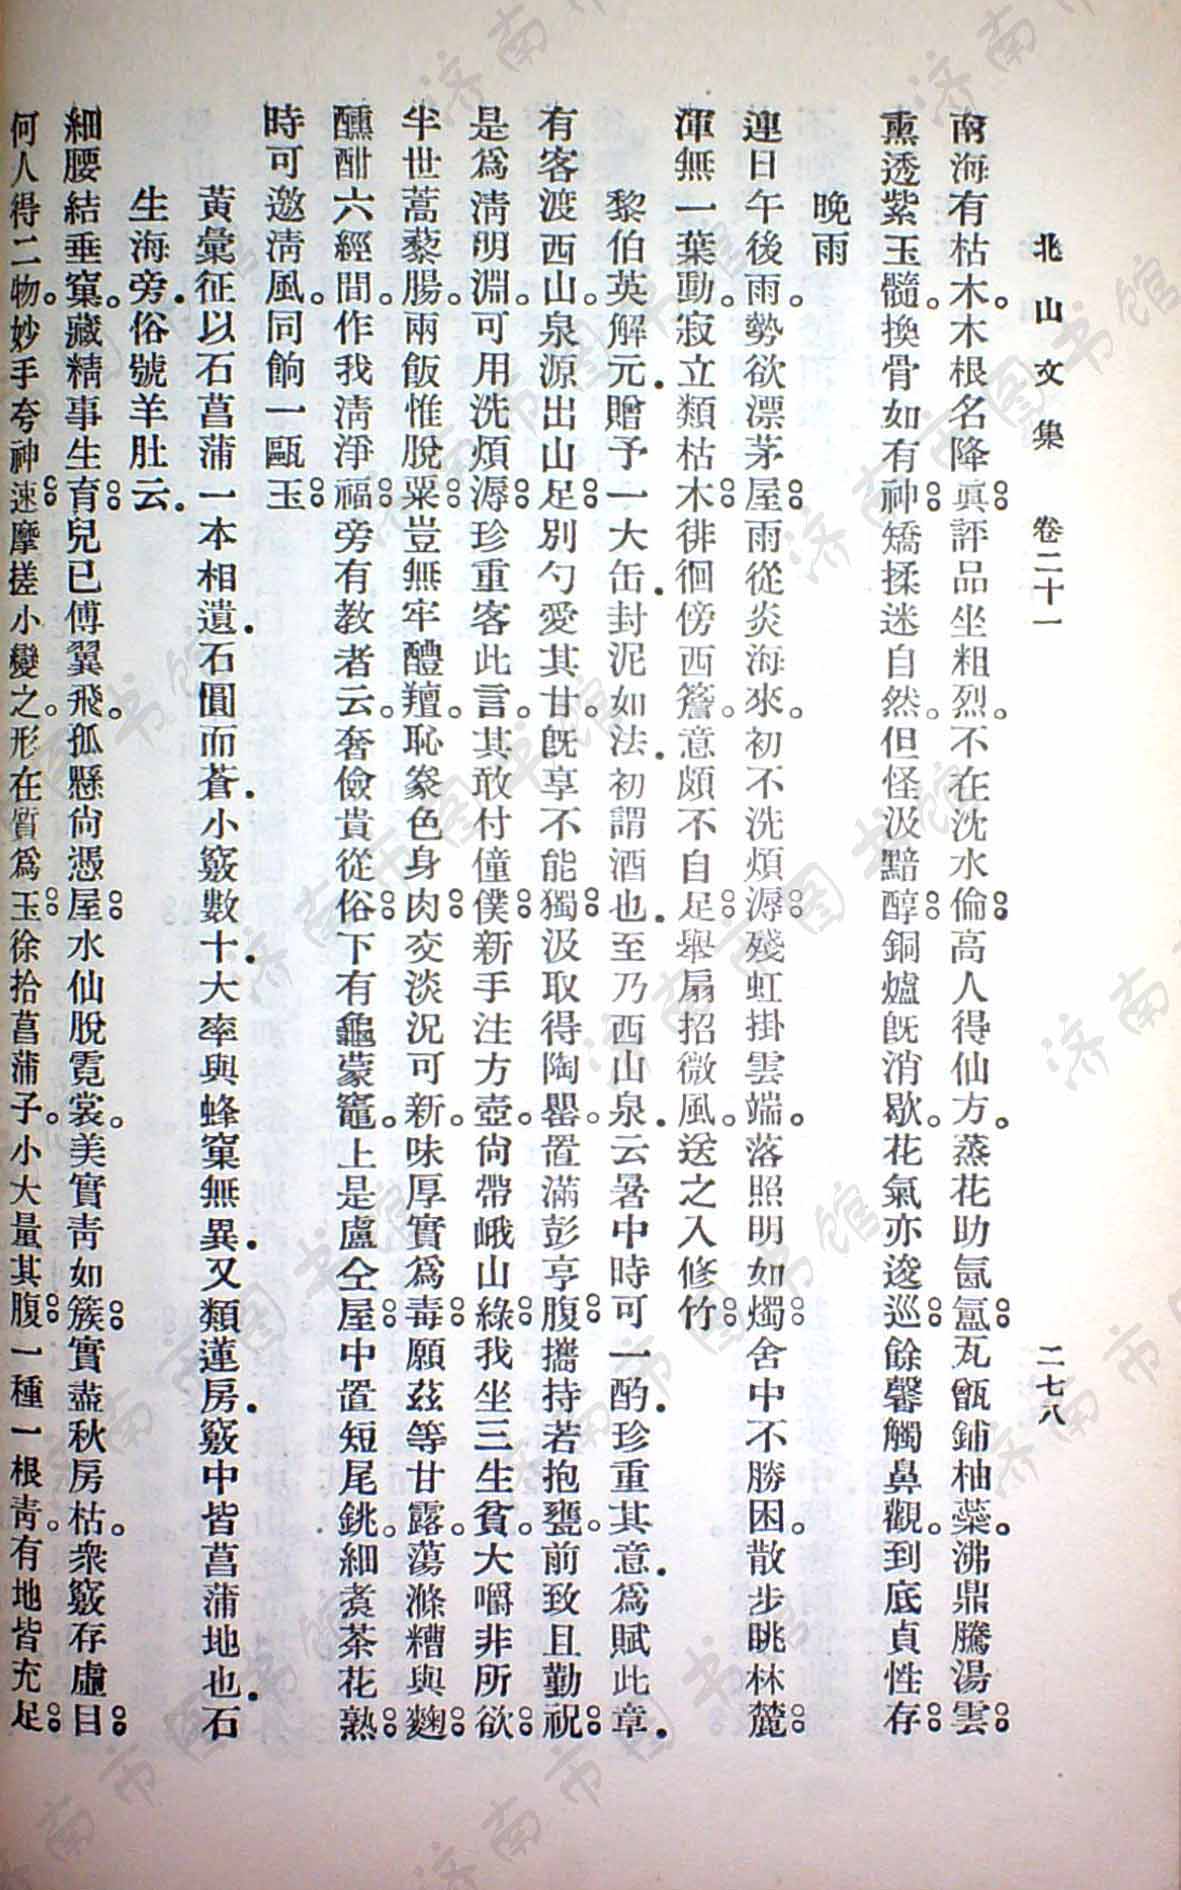 北山文集 卷二十一 二七八
南海有枯木。木根名降眞。評品坐粗烈。不在沈水倫。高人得仙方。蒸花助氤氳。瓦甑鋪柚蘂。沸鼎騰湯雲。
熏透紫玉髓。換骨如有神。矯揉迷自然。但怪汲黯醇。銅爐旣消歇。花氣亦逡巡。餘馨觸鼻觀。到底貞性存。
晚雨
連日午後雨。勢欲漂茅屋。雨從炎海來。初不洗煩溽。殘虹掛雲端。落照明如燭。舍中不勝困。散步眺林麓。
渾無一葉動。寂立類枯木。徘徊傍西簷。意頗不自足。舉扇招微風。送之入修竹。
黎伯英解元.贈予一大缶.封泥如法.初謂酒也.至乃西山泉.云暑中時可一酌.珍重其意.爲賦此章.
有客渡西山。泉源出山足。別勺愛其甘。旣享不能獨。汲取得陶罌。置滿彭亨腹。攜持若抱甕。前致且勤祝。
是爲淸明淵。可用洗煩溽。珍重客此言。其敢付僮僕。新手注方壺。尙帶峨山綠。我坐三生貧。大嚼非所欲。
半世蒿藜腸。兩飯惟脫粟。豈無牢醴羶。恥豢色身肉。交淡況可新。味厚實爲毒。願茲等甘露。蕩滌糟與麴。
醺酣六經間。作我淸淨福。旁有教者云。奢儉貴從俗。下有龜蒙竈。上是盧仝屋。中置短尾銚。細煑茶花熟。
時可邀淸風。同餉一甌玉。
黃彙征以石菖蒲一本相遺.石圓而蒼.小竅數十.大率與蜂窠無異.又類蓮房.竅中皆菖蒲地也.石
生海旁.俗號羊肚云.
細腰結垂窠。藏精事生育。兒已傅翼飛。孤懸尙憑屋。水仙脫霓裳。美實靑如簇。實盡秋房枯。衆竅存虛目。
何人得二物。妙手夸神速。摩搓小變之。形在質爲玉。徐拾菖蒲子。小大量其腹。一種一根靑。有地皆充足。